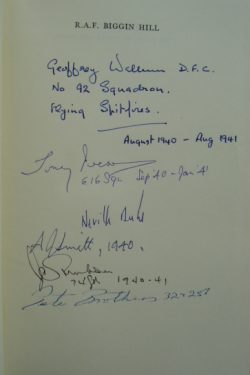 R.A.F. BIGGIN HILL
Geoffrey Wellum D.F.C.
No 92 Squadron.
Flying Spitfires.
August 1940 - Aug 1941
Tony
616 Sqn Sep '40 - Jan '41
Neville Duke
1940.
74 Sqn 1940-41
Pete Brothers 32 + 257